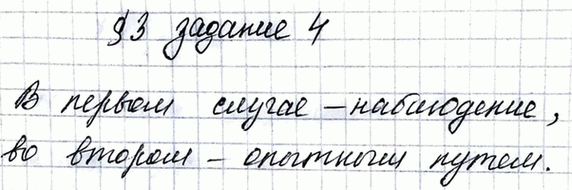 §3 задание 4
В первом случае – наблюдение,
во втором – опытным путем.